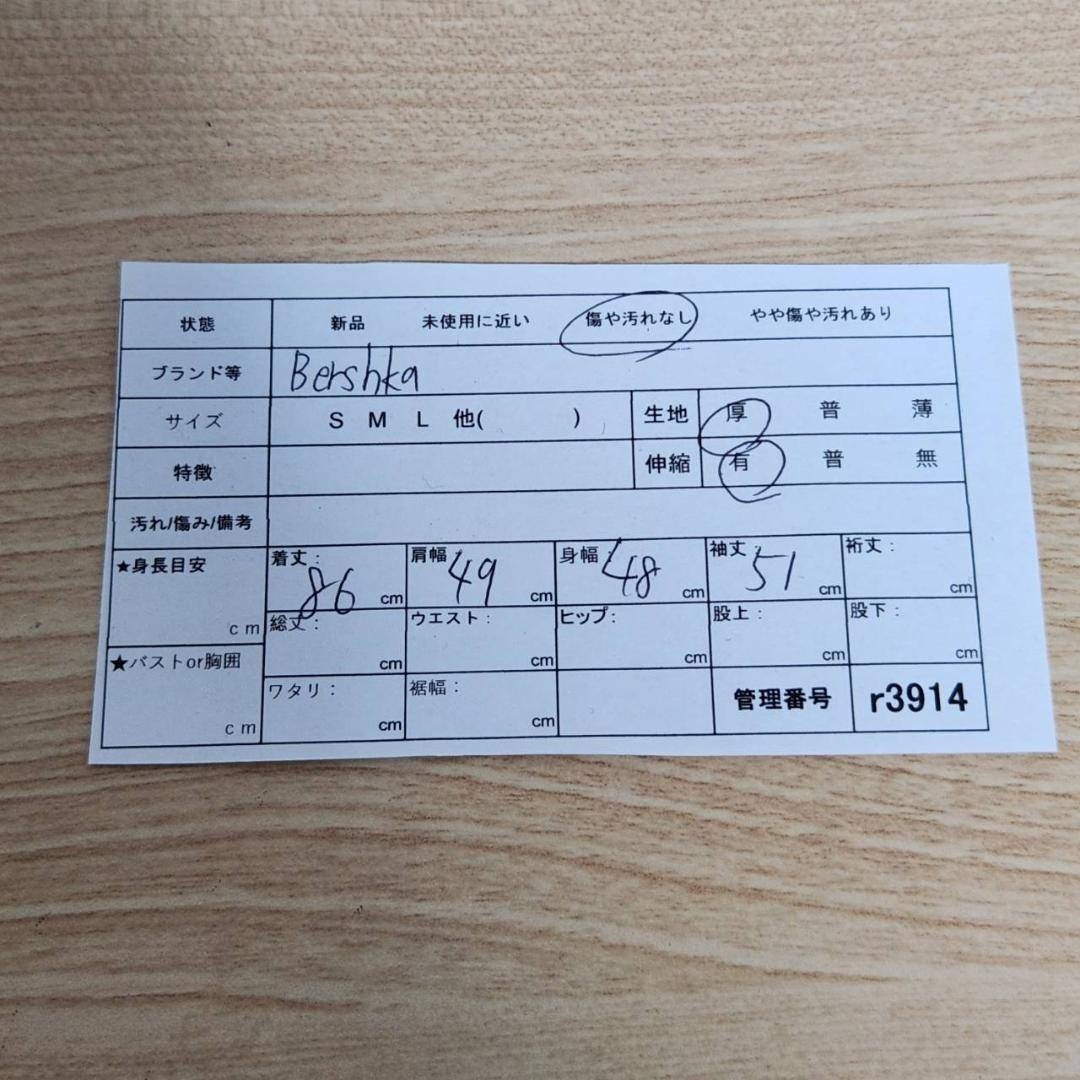 状態 新品 未使用に近い 傷や汚れなし やや傷や汚れあり
ブランド等 Bershka
サイズ S M L 他( ) 生地 厚 普 薄
特徴 伸縮 有 普 無
汚れ/傷み/備考
★身長目安 cm 着丈: 86 cm 肩幅 49 cm 身幅: 48 cm 袖丈 51 cm 裄丈: cm
総丈: cm ウエスト: cm ヒップ: cm 股上: cm 股下: cm
★バストor胸囲 cm ワタリ: cm 裾幅: cm 管理番号 r3914